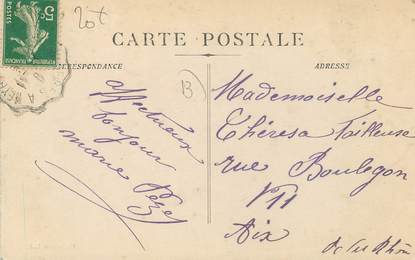 20+
5c
POSTES
CARTE POSTALE
CORRESPONDANCE
ADRESSE
13
Affectueux
bonjour
Marie
Mademoiselle
Thérésa Tailleuse
rue Boulegon
Aix